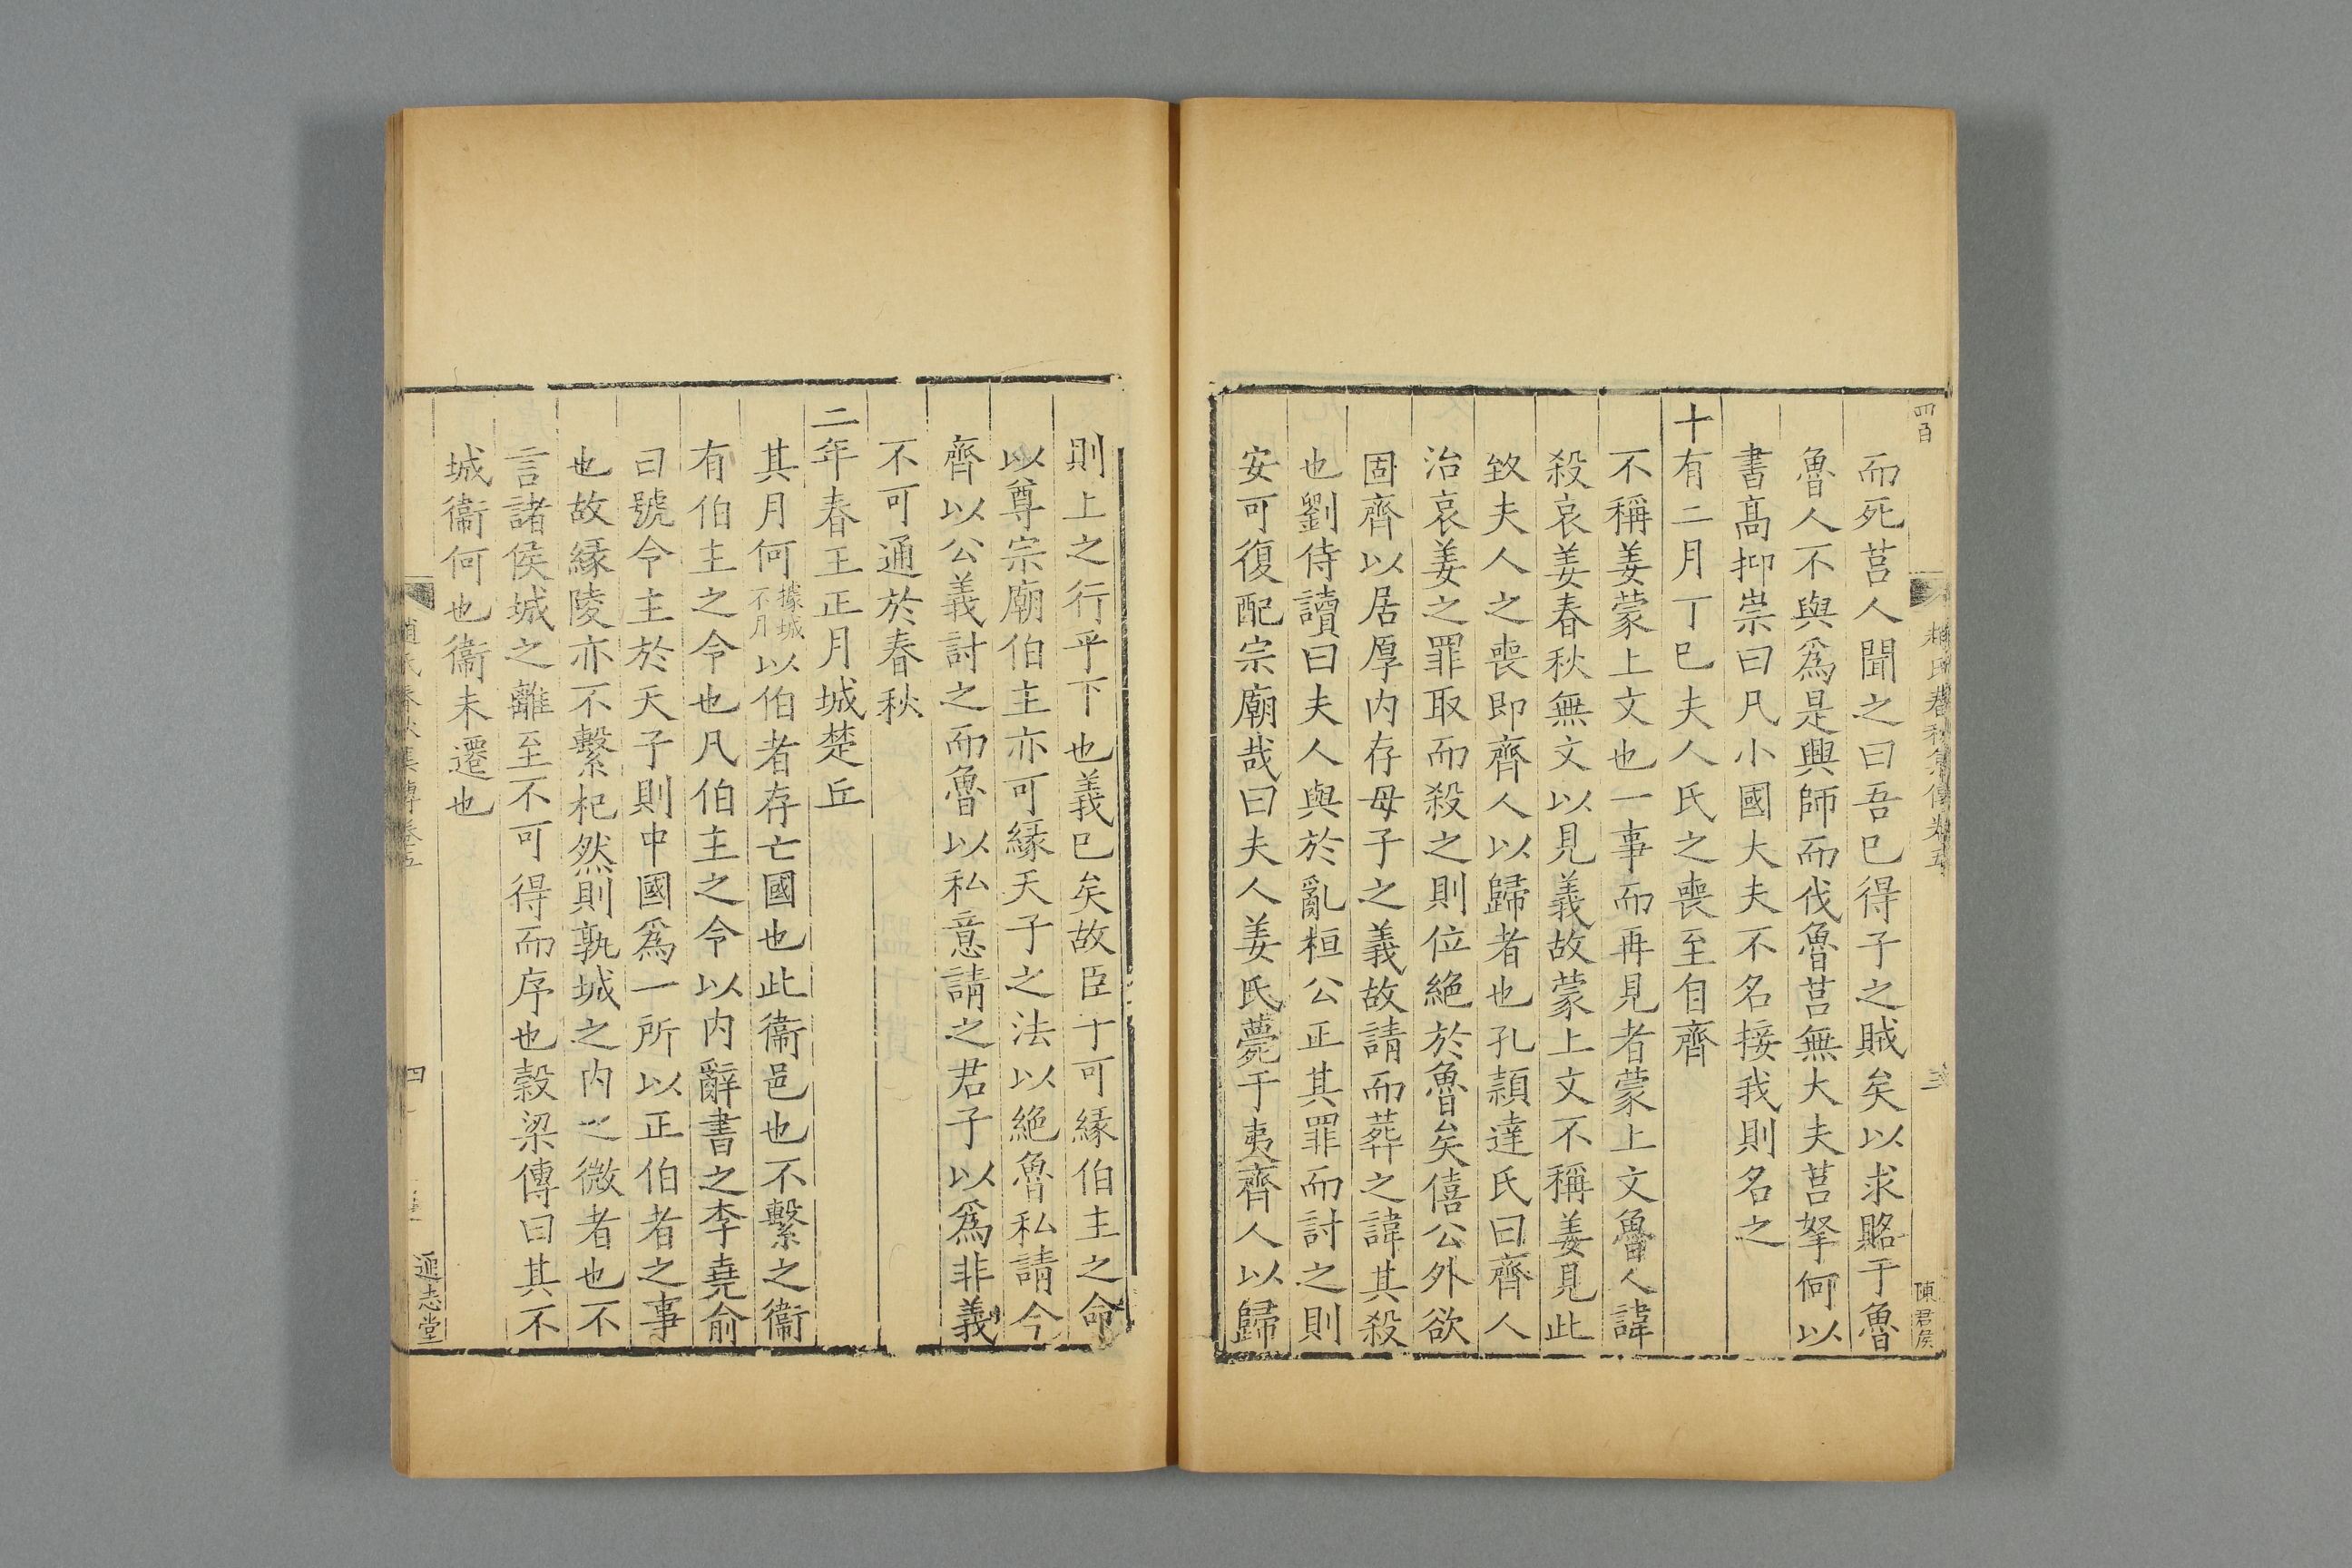 四百
趙氏春秋集傳卷五
三
陳君侯
而死莒人聞之曰吾已得子之賊矣以求賂于魯
魯人不與爲是興師而伐魯莒無大夫莒挐何以
書髙抑崇曰凡小國大夫不名接我則名之
十有二月丁巳夫人氏之喪至自齊
不稱姜蒙上文也一事而再見者蒙上文魯人諱
殺哀姜春秋無文以見義故蒙上文不稱姜見此
致夫人之喪即齊人以歸者也孔頴達氏曰齊人
治哀姜之罪取而殺之則位絶於魯矣僖公外欲
固齊以居厚内存母子之義故請而葬之諱其殺
也劉侍讀曰夫人與於亂桓公正其罪而討之則
安可復配宗廟哉曰夫人姜氏薨于夷齊人以歸
則上之行乎下也義已矣故臣子可縁伯主之命
以尊宗廟伯主亦可縁天子之法以絶魯私請今
齊以公義討之而魯以私意請之君子以爲非義
不可通於春秋
二年春王正月城楚丘
其月何據城不月以伯者存亡國也此衞邑也不繫之衞
有伯主之令也凡伯主之令以内辭書之李堯俞
曰號令主於天子則中國爲一所以正伯者之事
也故縁陵亦不繫杞然則孰城之内之微者也不
言諸侯城之離至不可得而序也榖梁傳曰其不
城衞何也衞未遷也
趙氏春秋集傳卷五
四
通志堂